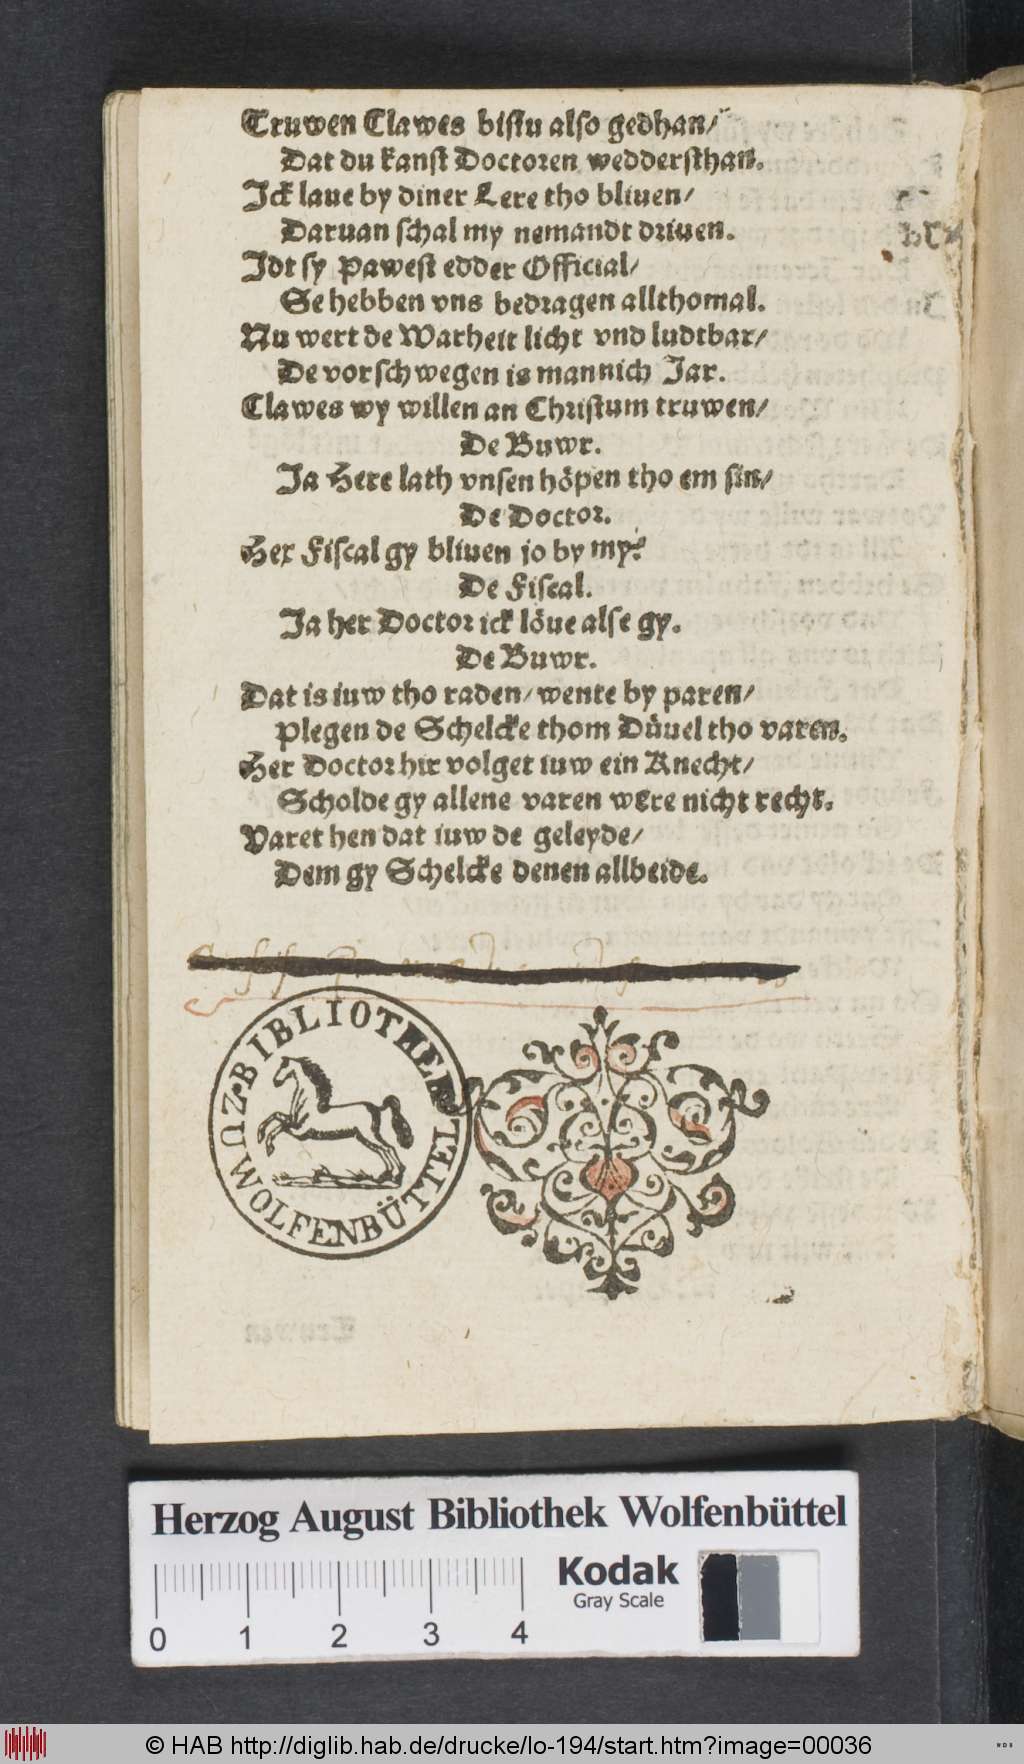 Truwen Clawes bistu also gedhan/
Dat du kanst Doctoren weddersthan.
Jck laue by diner Lere tho bliuen/
Daruan schal my nemandt driuen.
Jdt sy Pawest edder Official/
Se hebben vns bedragen allthomal.
Nu wert de Warheit licht vnd ludtbar/
De vorschwegen is mannich Jar.
Clawes wy willen an Christum truwen/
De Buwr.
Ja Here lath vnsen höpen tho em sin/
De Doctor.
Her Fiscal gy bliuen jo by my?
De Fiscal.
Ja her Doctor ick löue alse gy.
De Buwr.
Dat is iuw tho raden/ wente by paren/
Plegen de Schelcke thom Düuel tho varen.
Her Doctor hir volget iuw ein Knecht/
Scholde gy allene varen were nicht recht.
Varet hen dat iuw de geleyde/
Dem gy Schelcke denen allbeide.
BIBLIOTHEK
ZU WOLFENBÜTTEL
Herzog August Bibliothek Wolfenbüttel
Kodak
Gray Scale
0 1 2 3 4
© HAB http://diglib.hab.de/drucke/lo-194/start.htm?image=00036